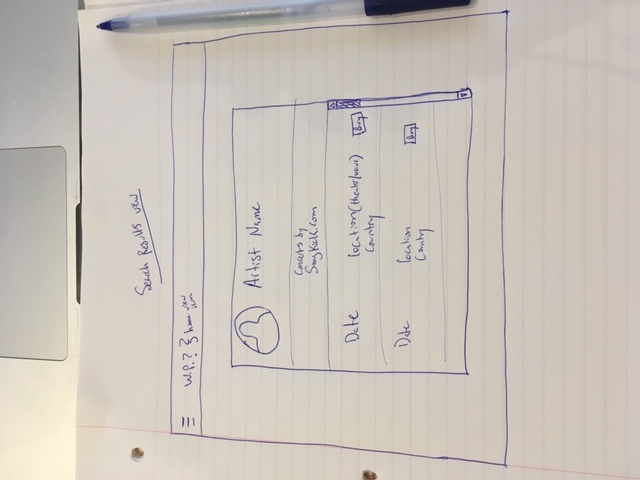 Search Results view
W.P.? } home view
icon
Artist Name
Concerts by
SongKick.com
Date location(theatre/venue) Buy
Country
Date location Buy
Country